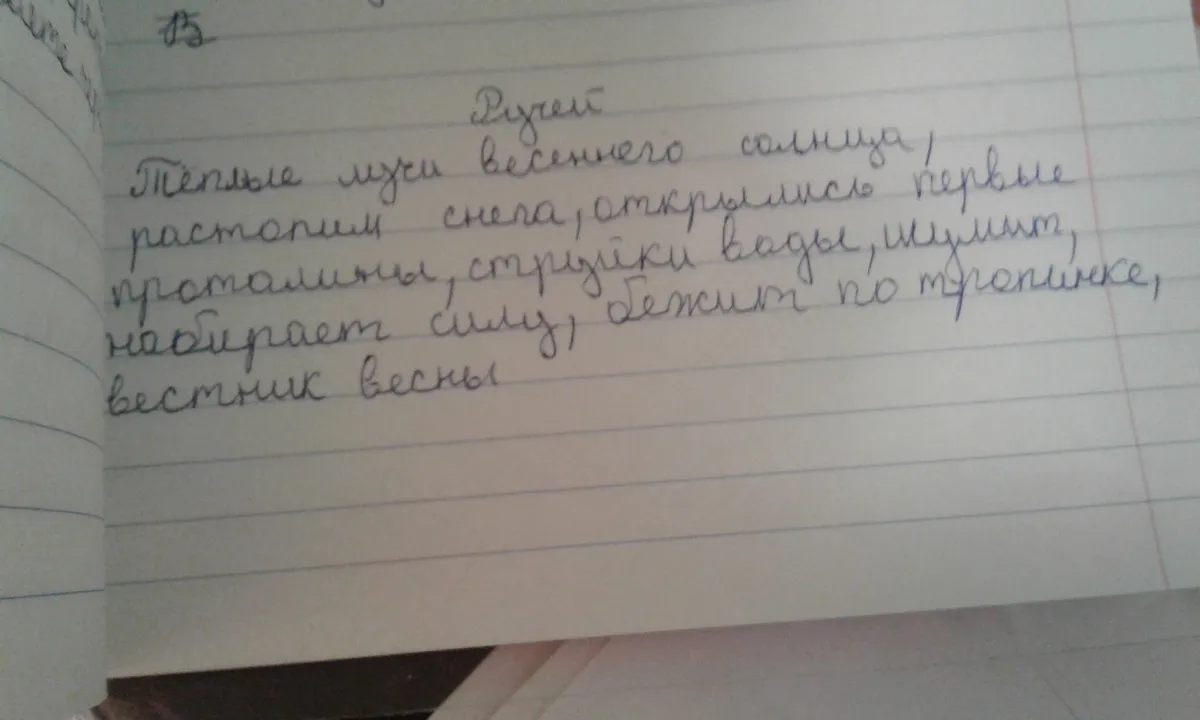 Ручей
Тёплые лучи весеннего солнца,
растопим снега, открылись первые
проталины, струйки воды, шумит,
набирает силу, бежит по тропинке,
вестник весны